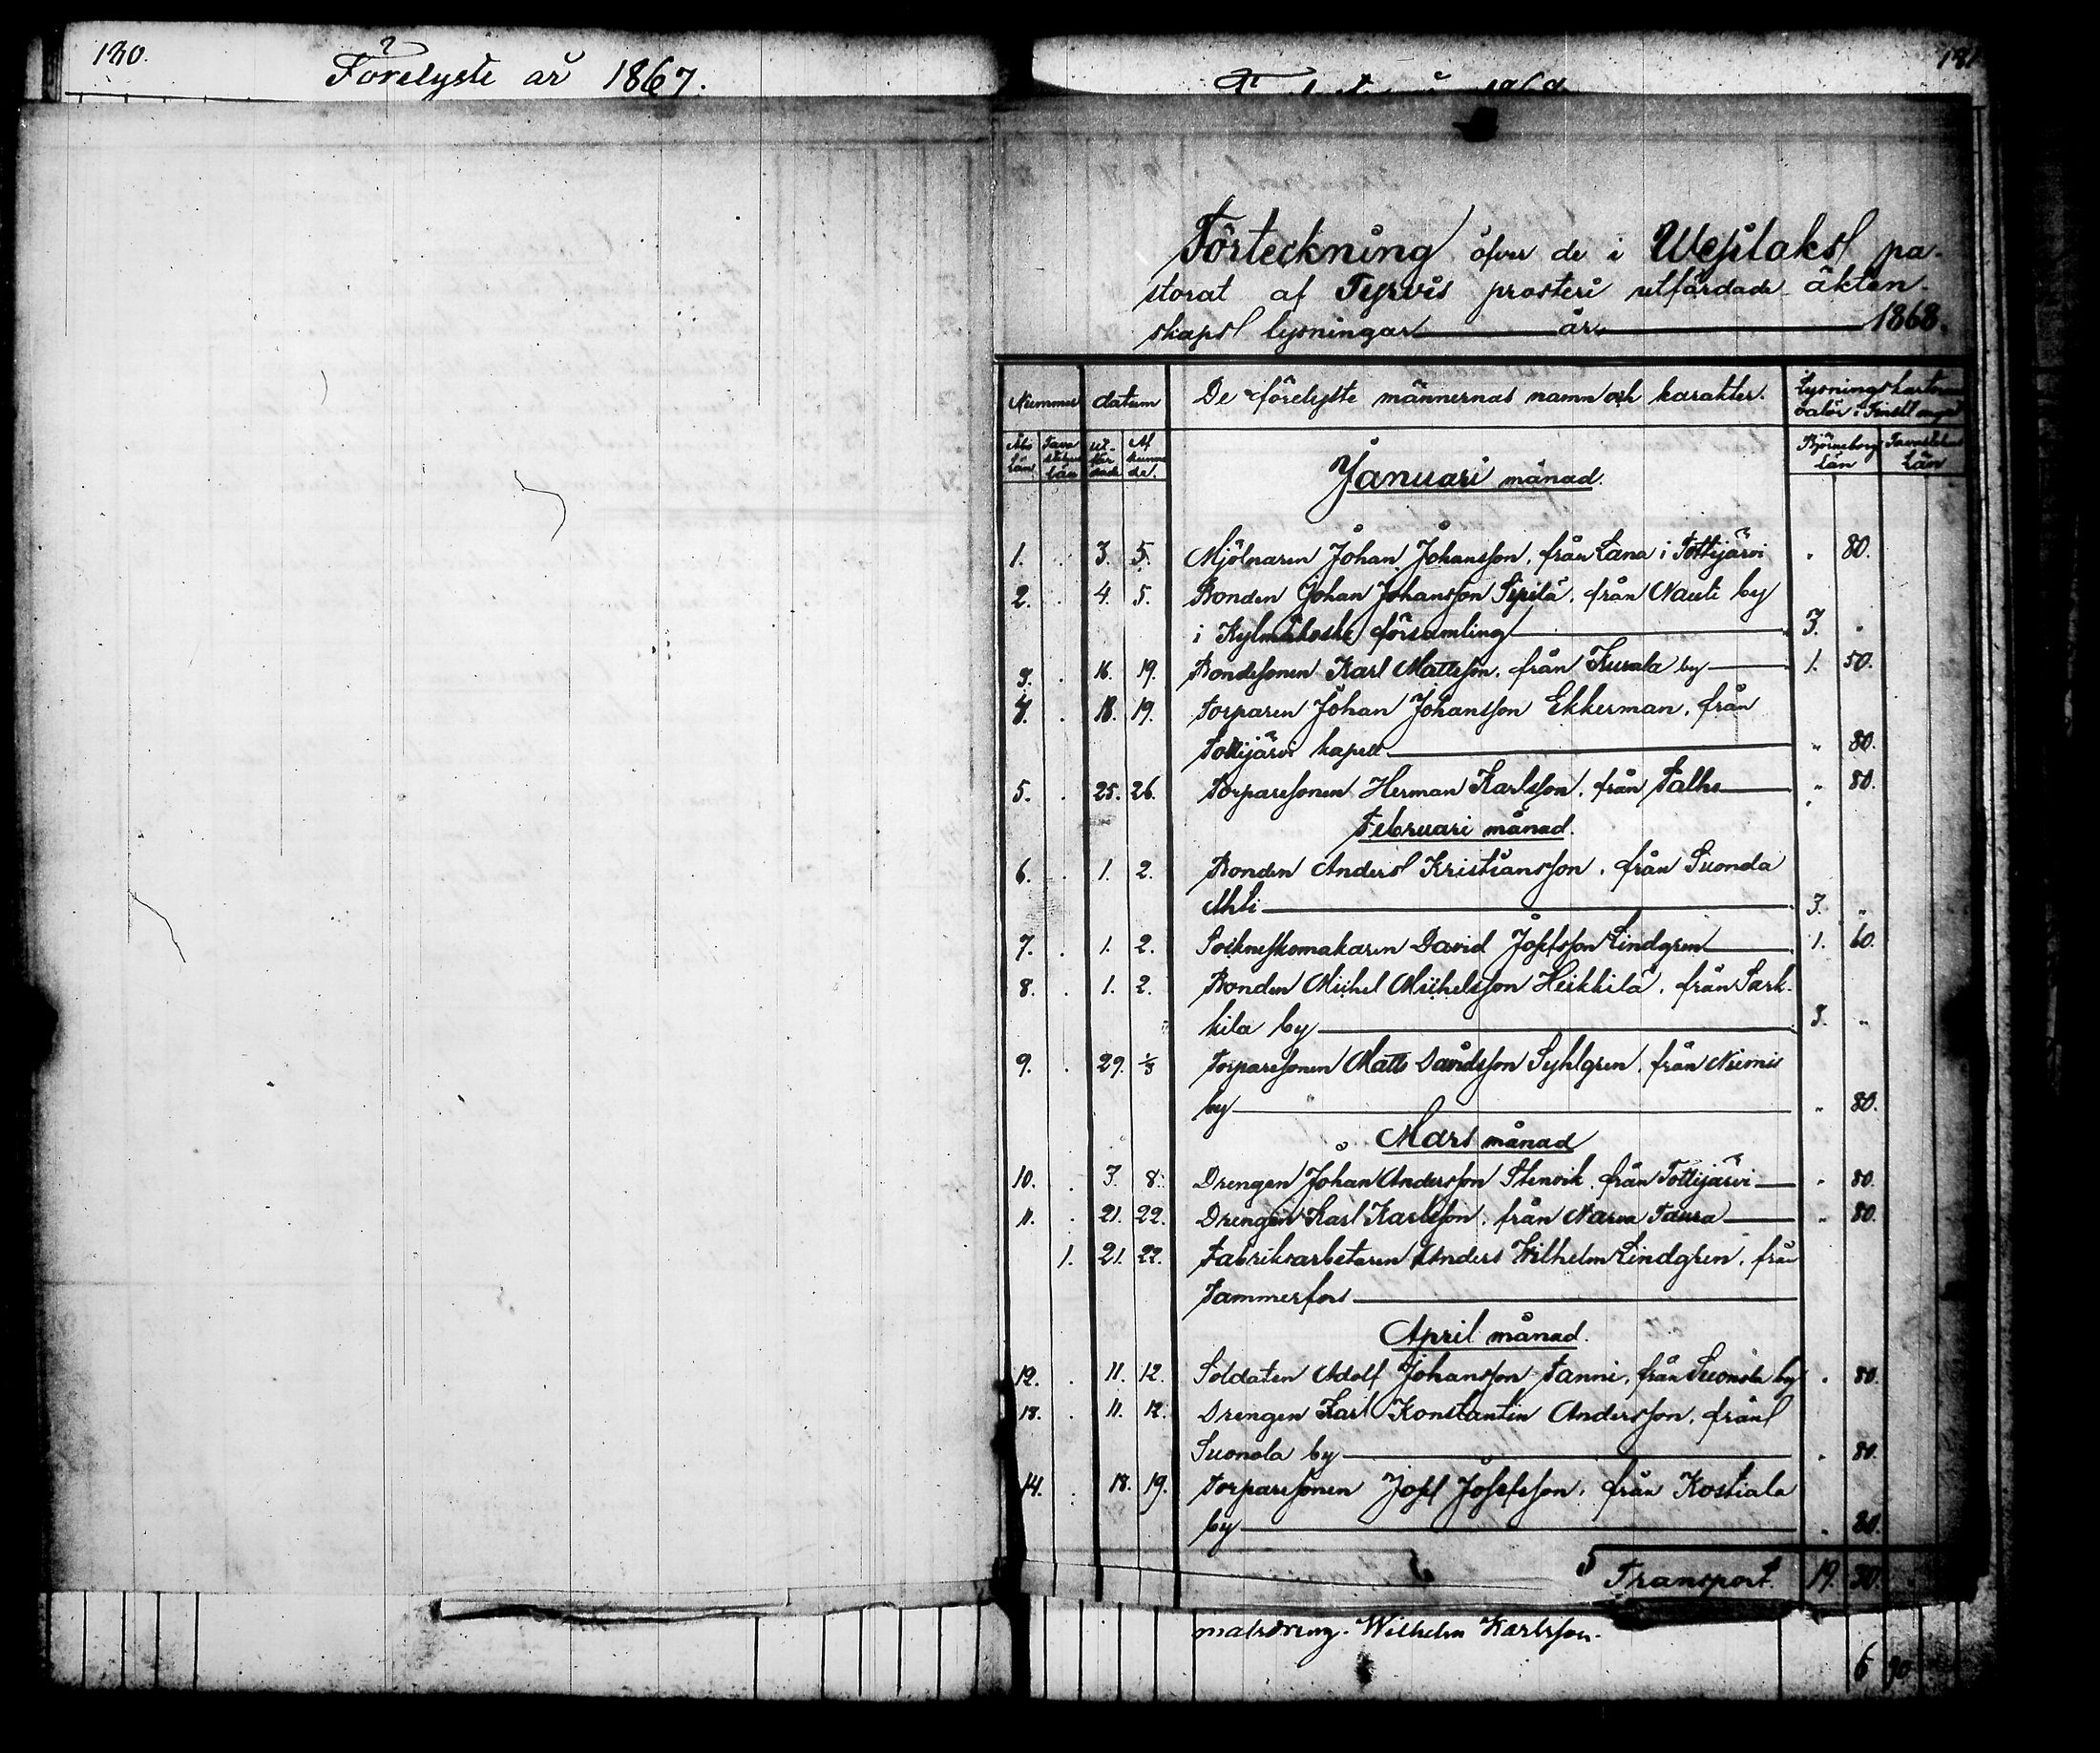 180.
Förelyste år 1867.
181
Förteckning öfver de i Wesilaks pa-
storat af Tyrvis prosteri utfärdade äkten-
skaps lysningar år 1868.
Nummer datum De förelyste männernas namn och karakter. Lysningskartans valör i Finskt mynt
Åbo Län. Tavastehus Län Utfärdade Afkunnade. Björneborgs Län Tavastehus Län
Januari månad.
1. 3. 5. Mjölnaren Johan Johansson, från Lana i Tottijärvi " 80.
2. 4. 5. Bonden Johan Johansson Sipilä, från Nauti by
i Kylmäkoski församling 3. "
3. 16. 19. Bondesonen Karl Mattsson, från Kurala by 1. 50.
4. 18. 19. Torparen Johan Johansson Ekkerman, från
Tottijärvi kapell " 80.
5. 25. 26. Torparesonen Herman Karlsson, från Palho " 80.
Februari månad.
6. 1. 2. Bonden Anders Kristiansson, från Suonola
Ahli 3. "
7. 1. 2. Sockneskomakaren David Josefsson Lindgren 1. 60.
8. 1. 2. Bonden Michel Michelsson Heikkilä, från Sark-
kila by 3. "
9. 29. 1/3 Torparesonen Matts Davidsson Syhlgren, från Niemis
by " 80.
Mars månad
10. 7. 8. Drengen Johan Andersson Stenvik, från Tottijärvi " 80.
11. 21. 22. Drengen Karl Karlsson, från Narva Taura " 80.
1. 21. 22. Fabriksarbetaren Anders Wilhelm Lindgren, från
Tammerfors
April månad.
12. 11. 12. Soldaten Adolf Johansson Tanni, från Suonola by " 80.
13. 11. 12. Drengen Karl Konstantin Andersson, från
Suonola by " 80.
14. 18. 19. Torparesonen Josef Josefsson, från Kostiala
by " 80.
Transport 19. 30.
malsdreng. Wilhelm Karlsson.
6 90